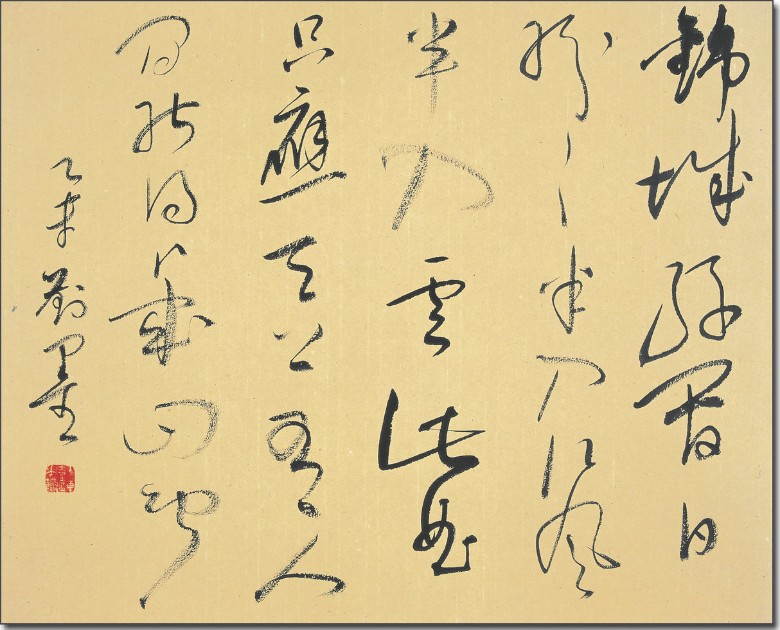 錦城絲管日
紛々半入江風
半入雲此曲
只應天上有人
間能得幾回聞
乙未劉墨